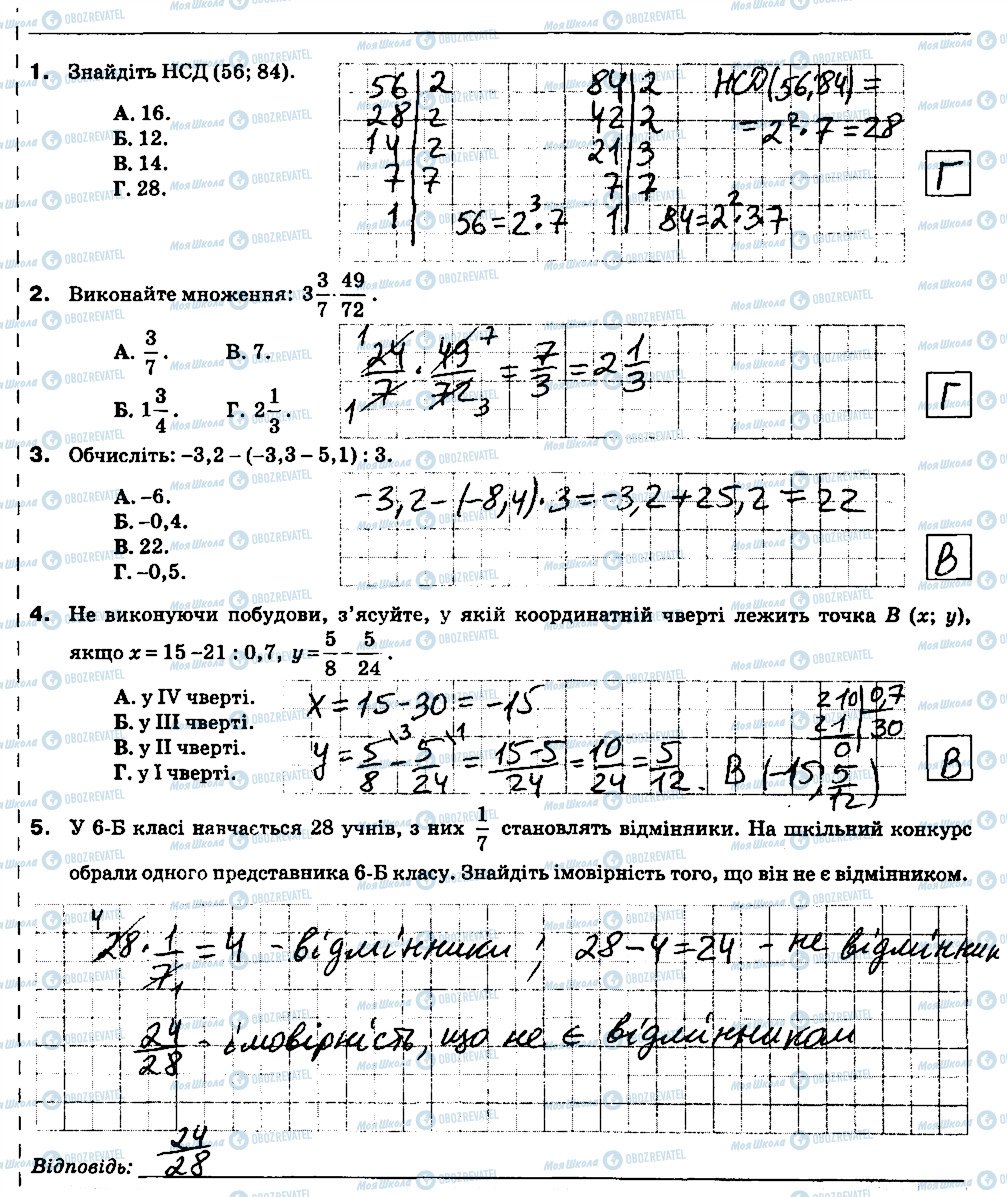 1. Знайдіть НСД (56; 84).
А. 16.
Б. 12.
В. 14.
Г. 28.
56 | 2
28 | 2
14 | 2
7 | 7
1
56 = 2³ · 7
84 | 2
42 | 2
21 | 3
7 | 7
1
84 = 2² · 3 · 7
НСД(56, 84) =
= 2² · 7 = 28
Г
2. Виконайте множення: 3 3/7 · 49/72 .
А. 3/7 . В. 7.
Б. 1 3/4 . Г. 2 1/3 .
24/7 · 49/72 = 7/3 = 2 1/3
Г
3. Обчисліть: –3,2 – (–3,3 – 5,1) : 3.
А. –6.
Б. –0,4.
В. 22.
Г. –0,5.
-3,2 - (-8,4) · 3 = -3,2 + 25,2 = 22
В
4. Не виконуючи побудови, з’ясуйте, у якій координатній чверті лежить точка B (x; y),
якщо x = 15 –21 : 0,7, y = 5/8 – 5/24 .
А. у IV чверті.
Б. у III чверті.
В. у II чверті.
Г. у I чверті.
x = 15 - 30 = -15
210 | 0,7
21 | 30
0
y = 5/8 \3 - 5/24 \1 = 15-5/24 = 10/24 = 5/12. B (-15; 5/12)
В
5. У 6-Б класі навчається 28 учнів, з них 1/7 становлять відмінники. На шкільний конкурс
обрали одного представника 6-Б класу. Знайдіть імовірність того, що він не є відмінником.
28 · 1/7 = 4 - відмінники ; 28 - 4 = 24 - не відмінник
24/28 - імовірність, що не є відмінником
Відповідь: 24/28
МояШкола OBOZREVATEL